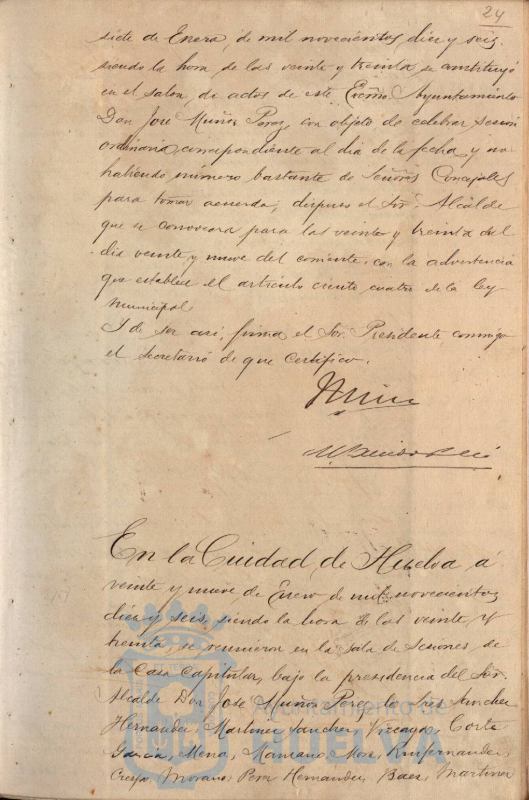 24
siete de Enero, de mil novecientos diez y seis
siendo la hora de las veinte y treinta se constituyó
en el salon de actos de este Excmo Ayuntamiento
Don José Muñoz Perez, con objeto de celebrar sesion
ordinaria, correspondiente al dia de la fecha y no
habiendo número bastante de Señores Concejales
para tomar acuerdo, dispuso el Sor. Alcalde
que se convocara para las veinte y treinta del
dia veinte y nueve del corriente, con la advertencia
que establece el artículo ciento cuatro de la ley
Municipal.
I de ser asi, firma el Sor. Presidente, conmigo
el secretario de que certifico.
En la Ciudad de Huelva á
veinte y nueve de Enero de mil novecientos
diez y seis, siendo la hora de las veinte y
treinta, se reunieron en la sala de Sesiones de
la Casa Capitular, bajo la presidencia del Sor.
Alcalde Don José Muñoz Perez, los Sres Sanchez
Hernandez, Martinez Sanchez, Vizcaya, Corte
Garcia, Mena, Manzano, Mora, Ruifernandez,
Crespo, Morano, Perez Hernandez, Baez, Martinez
Ayuntamiento de
HUELVA